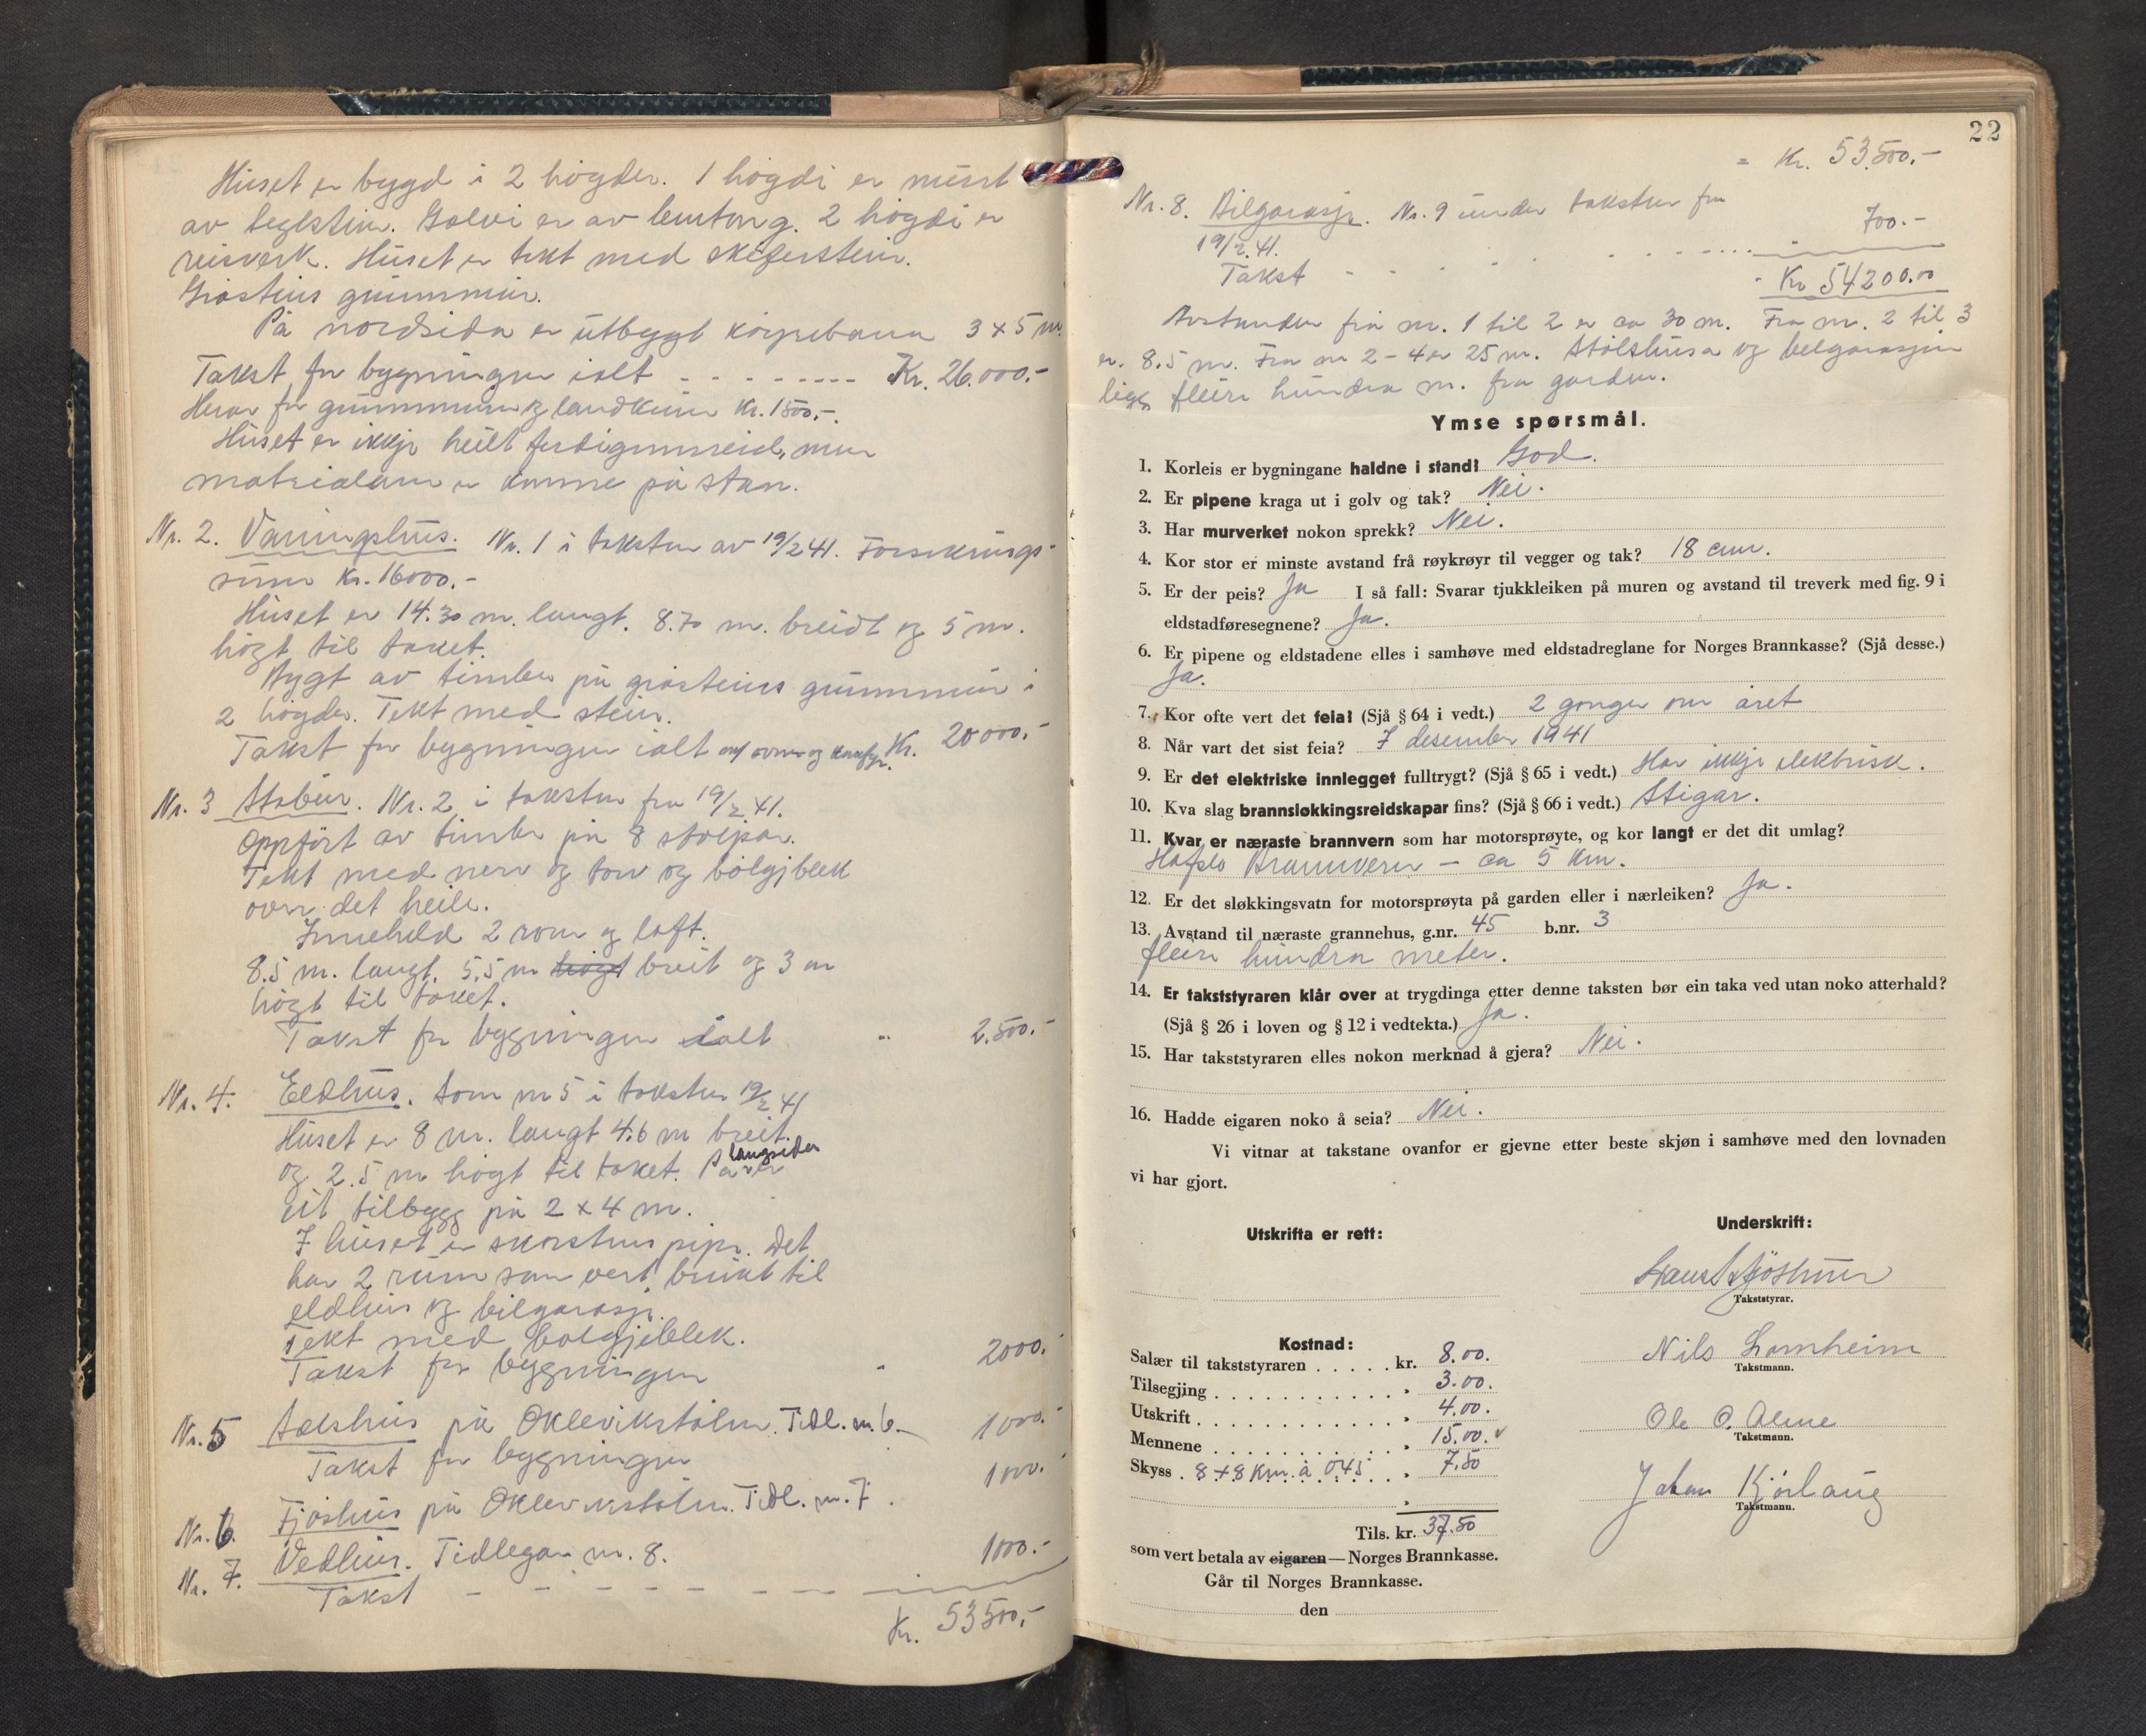 Huset er bygd i 2 høgder. 1 høgdi er murt
av teglstein. Golvi er av betong. 2 høgdi er
reisverk. Huset er tekt med skiferstein.
Gråsteins grunnmur.
På nordsida er utbygt køyrebana 3 x 5 m.
Takst for bygningen ialt - - - - - - - Kr. 26.000.-
Herav for grunnmurer og landkum Kr. 1500,-.
Huset er ikkje heilt ferdiginnreid, men
materialane er komne på stan.
Nr. 2. Vaningshus. Nr. 1 i taksten av 19/2 41. Forsikrings-
sum Kr. 16000.-
Huset er 14.30 m. langt. 8.70 m. breidt og 5 m.
høgt til taket.
Bygt av timber på gråsteins grunnmur i
2 høgder. Tekt med stein.
Takst for bygningen ialt m/ ovner og komfyr. Kr. 20000.-
Nr. 3 Stabur. Nr. 2 i taksten fra 19/2 41.
Oppført av timber på 8 stolpar.
Tekt med never og torv og bølgjblek
over det heile.
Inneheld 2 rom og loft.
8.5 m. langt. 5.5 m høgt breit og 3 m
høgt til taket.
Takst for bygningen ialt " 2.500.-
Nr. 4. Eldhus. Som nr 5 i taksten 19/2 41
Huset er 8 m. langt 4.6 m breit.
og 2.5 m høgt til taket. På langsiden er
eit tilbygg på 2 x 4 m.
I huset er skorsteins pipe. Det
har 2 rum som vert brukt til
eldhus og bilgarasje.
Tekt med bølgjeblek.
Takst for bygningen " 2000.-
Nr. 5 Selshus på Oklevikstølen. Tidl. nr. 6.
Takst for bygningen 1000.-
Nr. 6. Fjøshus på Oklevikstølen. Tidl. nr. 7. 1000.-
Nr. 7. Vedhus. Tidlegare nr. 8.
Takst - - - - - - - 1000.-
Kr. 53500,-
22
= Kr. 53.500.-
Nr. 8. Bilgarasje. Nr. 9 under taksten fra
19/2 41.
Takst - - - - 700.-
Kr 54200.00
Avstanden frå nr. 1 til 2 er ca 30 m. Fra nr. 2 til 3
er. 8.5 m. Fra nr 2 - 4 er 25 m. Stølshusa og bilgarasjen
ligg fleire hundra m. fra garden.
Ymse spørsmål.
1. Korleis er bygningane haldne i stand? God.
2. Er pipene kraga ut i golv og tak? Nei.
3. Har murverket nokon sprekk? Nei.
4. Kor stor er minste avstand frå røykrøyr til vegger og tak? 18 cm.
5. Er der peis? Ja I så fall: Svarar tjukkleiken på muren og avstand til treverk med fig. 9 i
eldstadføresegnene? Ja.
6. Er pipene og eldstadene elles i samhøve med eldstadreglane for Norges Brannkasse? (Sjå desse.)
Ja.
7. Kor ofte vert det feia? (Sjå § 64 i vedt.) 2 gonger om året
8. Når vart det sist feia? 7 desember 1941
9. Er det elektriske innlegget fulltrygt? (Sjå § 65 i vedt.) Har ikkje elektrisk.
10. Kva slag brannsløkkingsreidskapar fins? (Sjå § 66 i vedt.) Stigar.
11. Kvar er næraste brannvern som har motorsprøyte, og kor langt er det dit umlag?
Hafslo Brannvern - ca 5 km.
12. Er det sløkkingsvatn for motorsprøyta på garden eller i nærleiken? Ja.
13. Avstand til næraste grannehus, g.nr. 45 b.nr. 3
fleire hundra meter.
14. Er takststyraren klår over at trygdinga etter denne taksten bør ein taka ved utan noko atterhald?
(Sjå § 26 i loven og § 12 i vedtekta.) Ja.
15. Har takststyraren elles nokon merknad å gjera? Nei.
16. Hadde eigaren noko å seia? Nei.
Vi vitnar at takstane ovanfor er gjevne etter beste skjøn i samhøve med den lovnaden
vi har gjort.
Utskrifta er rett:
Underskrift:
Takststyrar.
Nils Lomheim
Takstmann.
Ole O. Alme
Takstmann.
Johan Kjørlaug
Takstmann.
Kostnad:
Salær til takststyraren . . . . . kr. 8.00.
Tilsegjing . . . . . . . . . . . . " 3.00.
Utskrift . . . . . . . . . . . . . " 4.00.
Mennene . . . . . . . . . . . . " 15.00.
Skyss . 8+8 Km. à 045 . . " 7.50
"
Tils. kr. 37.50
som vert betala av eigaren — Norges Brannkasse.
Går til Norges Brannkasse.
den